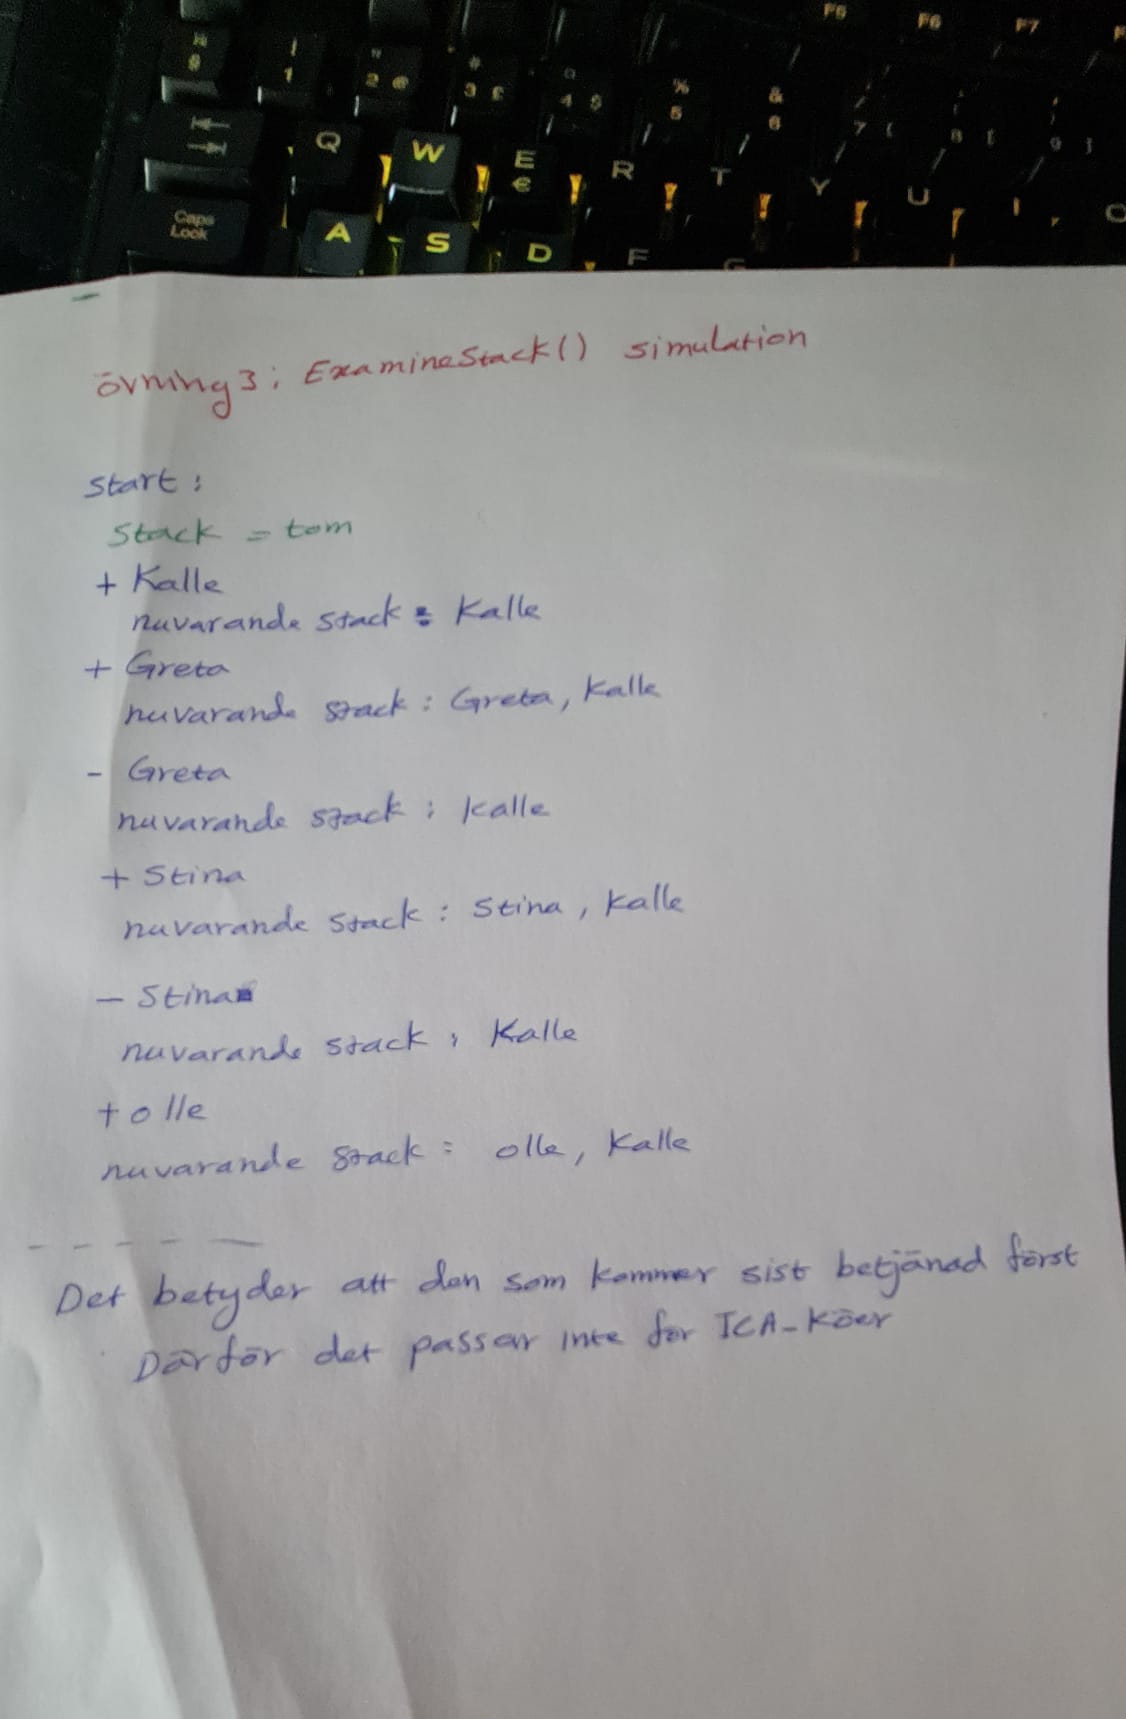 F5 F6 F7
! 1 " 2 @ # 3 £ ¤ 4 $ % 5 & 6 / 7 {
Q W E € R T Y U I O
Caps Lock A S D F G
övning 3: ExamineStack() simulation
Start:
Stack = tom
+ Kalle
nuvarande stack : Kalle
+ Greta
nuvarande stack : Greta, Kalle
- Greta
nuvarande stack : Kalle
+ Stina
nuvarande stack : Stina, Kalle
- Stina
nuvarande stack : Kalle
+ olle
nuvarande stack : olle, Kalle
Det betyder att den som kommer sist betjänad först
Därför det passar inte för ICA-Köer